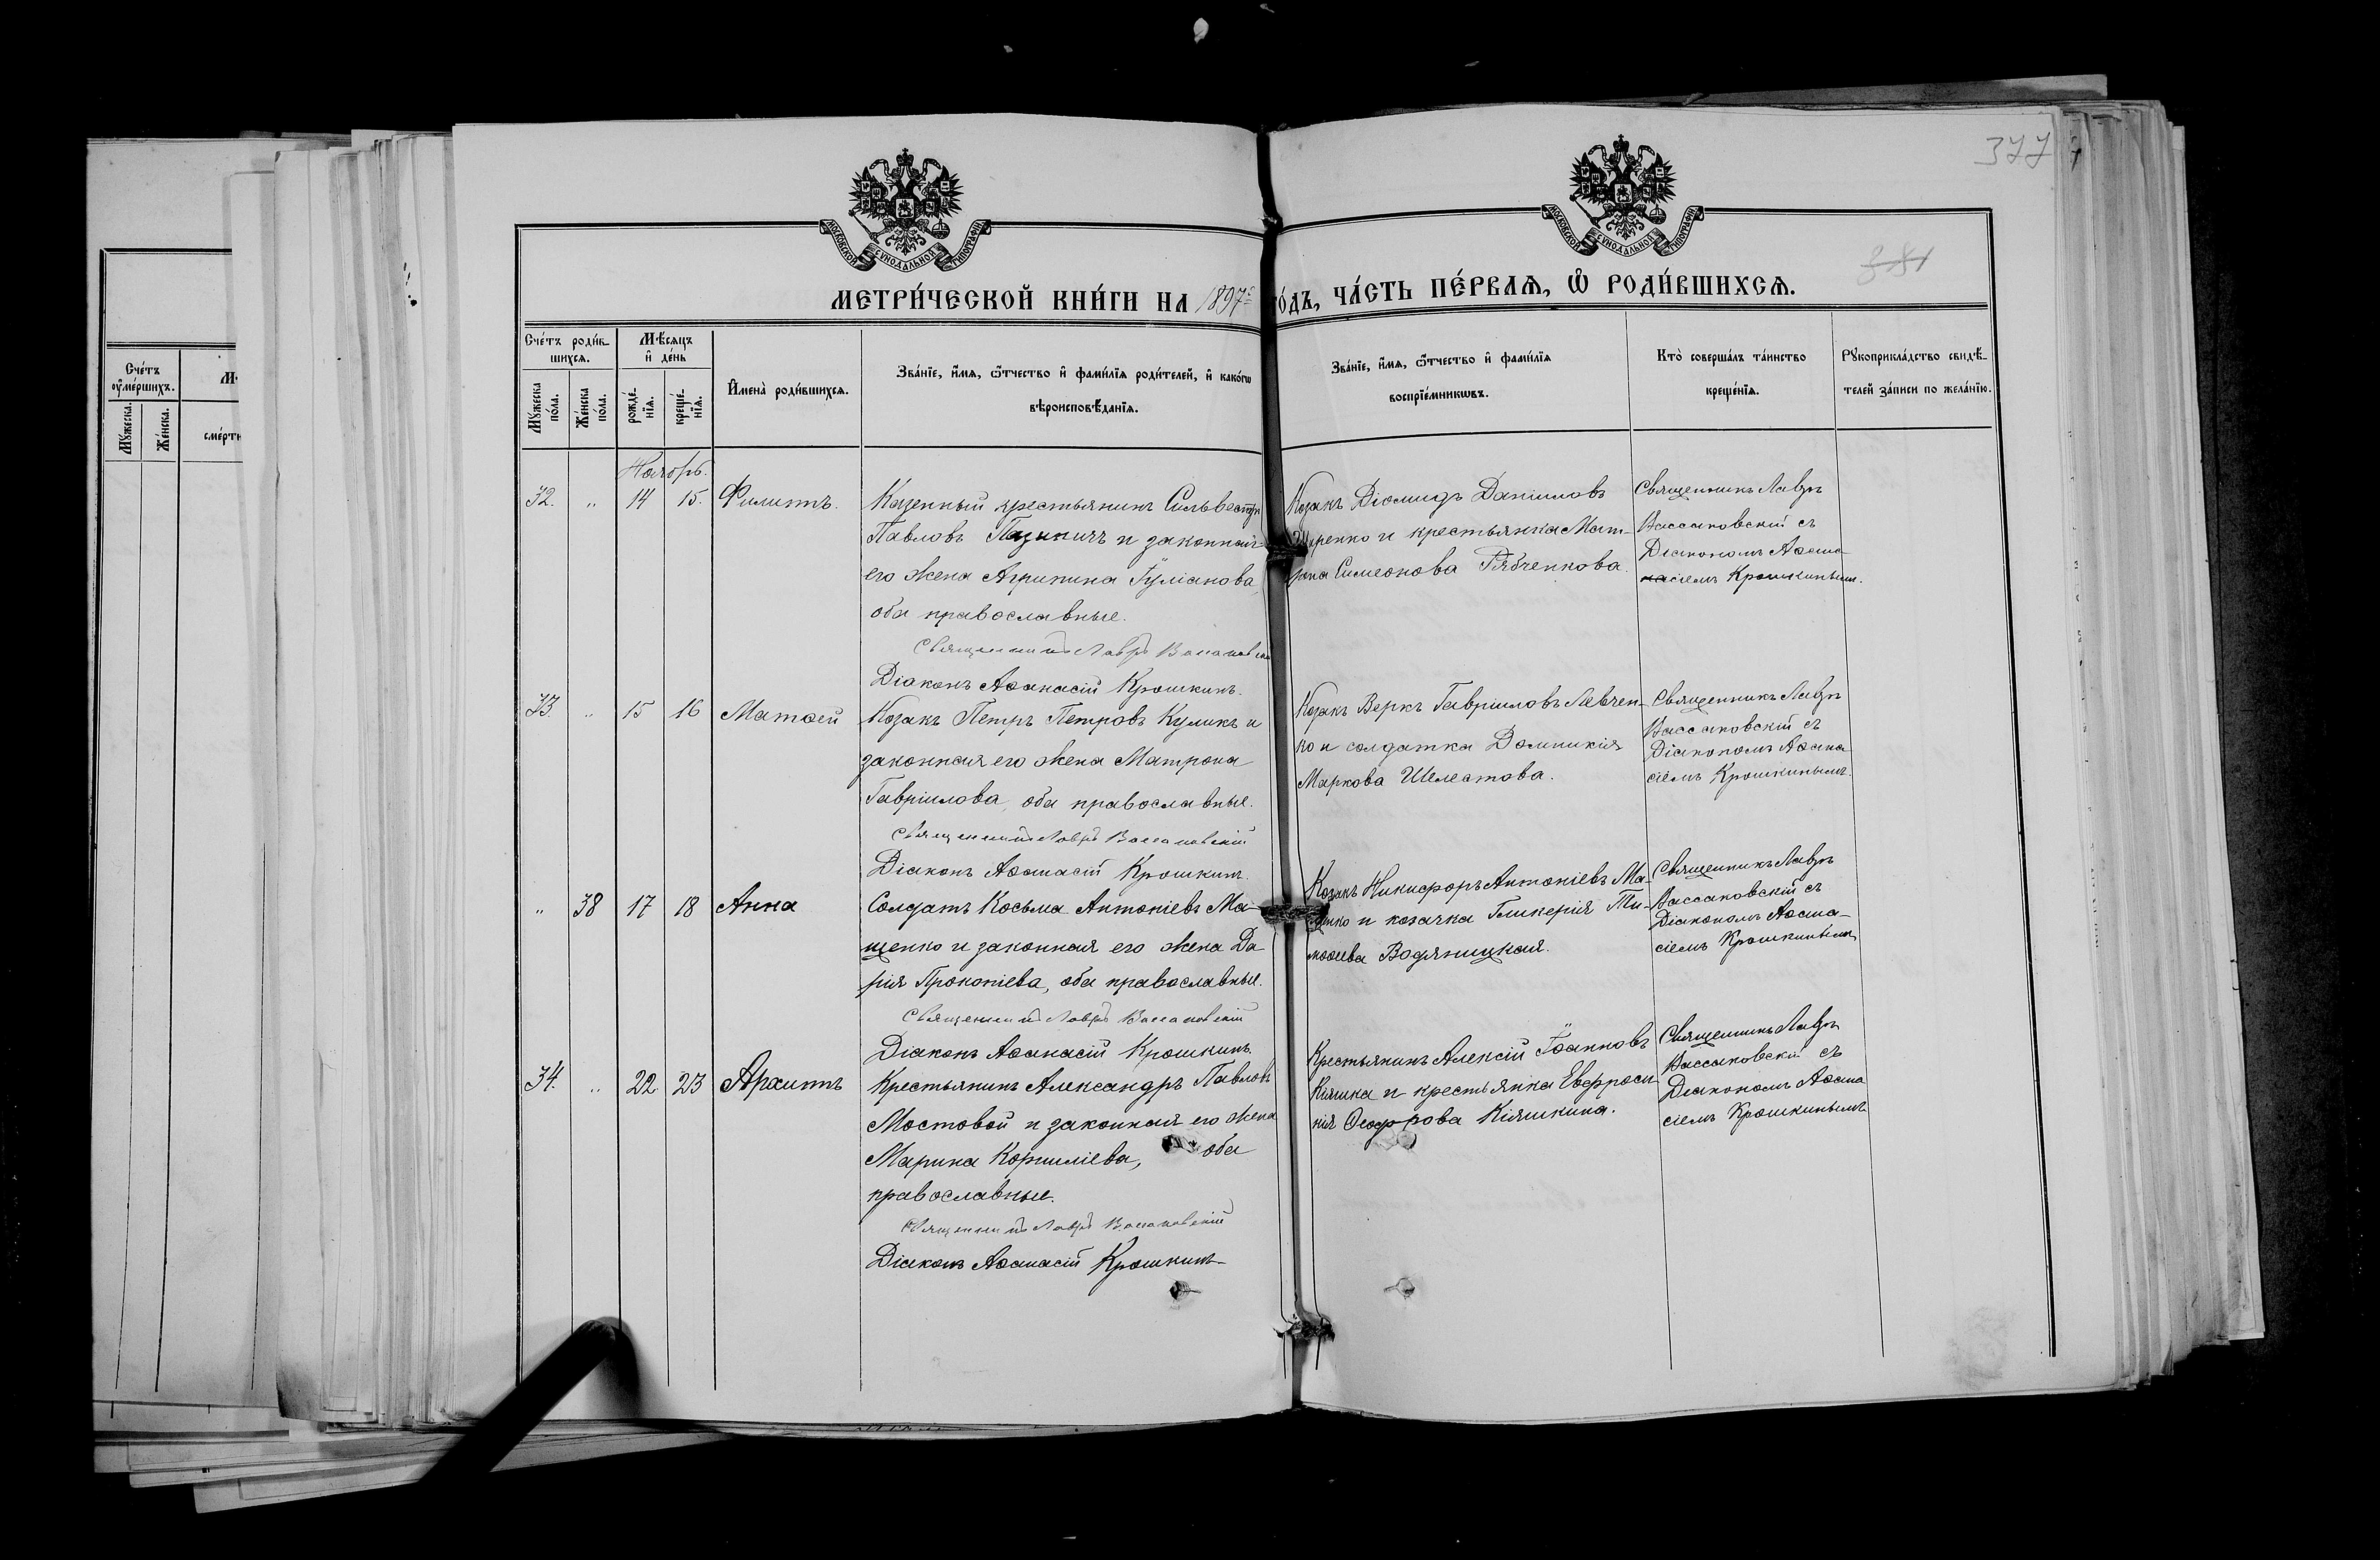 377
381
МОСКОВСКОЙ СѴНОДАЛЬНОЙ ТИПОГРАФІИ
МОСКОВСКОЙ СѴНОДАЛЬНОЙ ТИПОГРАФІИ
МЕТРИ́ЧЕСКОЙ КНИ́ГИ НА 1897 ГО́ДЪ, ЧА́СТЬ ПЕ́РВАЯ, Ѽ РОДИ́ВШИХСЯ.
Сче́тъ
ᲂу҆ме́ршихъ.
Мꙋ́жеска.
Же́нска.
сме́рти
Сче́тъ роди́в-
шихся.
Мꙋ́жеска по́ла.
Же́нска по́ла.
Мѣ́сяцъ
и҆ де́нь
рожде́-
нїя.
креще́-
нїя.
И҆мена̀ роди́вшихся.
Зва́нїе, и҆́мя, ѻ҆́тчество и҆ фами́лїя роди́телей, и҆ како́гѡ
вѣроисповѣ́данїя.
Зва́нїе, и҆́мя, ѻ҆́тчество и҆ фами́лїя
воспрїе́мникѡвъ.
Кто̀ соверша́лъ та́инство
креще́нїя.
Рꙋкоприкла́дство свидѣ́-
телей за́писи по жела́нїю.
Ноябрь.
32. " 14 15. Филиппъ.
Казенный крестьянинъ Сильвестръ
Павловъ и законная
его жена Агрипина Іуліанова,
оба православные.
Священникъ Лавръ Вассаковскій
Діаконъ Аѳанасій Крошкинъ.
Козакъ Діомидъ Даніиловъ
и крестьянка Мат-
рона Симеонова Рябченкова.
Священникъ Лавръ
Вассаковскій съ
Діакономъ Аѳана-
сіемъ Крошкинымъ.
33. " 15 16 Матѳей
Козакъ Петръ Петровъ Куликъ и
законная его жена Матрона
Гавріилова, оба православные.
Священникъ Лавръ Вассаковскій
Діаконъ Аѳанасій Крошкинъ.
Козакъ Веркъ Гавріиловъ Левчен-
ко и солдатка Домникія
Маркова Шелестова.
Священникъ Лавръ
Вассаковскій съ
Діакономъ Аѳана-
сіемъ Крошкинымъ.
" 38 17 18 Анна
Солдатъ Косьма Антоніевъ Ма-
щенко и законная его жена Да
рія Прокопіева, оба православные.
Священникъ Лавръ Вассаковскій
Діаконъ Аѳанасій Крошкинъ.
Козакъ Никифоръ Антоніевъ Ма-
щенко и козачка Гликерія Ти-
моѳеева Водяницкая.
Священникъ Лавръ
Вассаковскій съ
Діакономъ Аѳана-
сіемъ Крошкинымъ
34. " 22 23 Архиппъ
Крестьянинъ Александръ Павловъ
Мостовой и законная его жена
Марина Корниліева, оба
православные.
Священникъ Лавръ Вассаковскій
Діаконъ Аѳанасій Крошкинъ
Крестьянинъ Алексій Іоанновъ
Кіяшка и крестьянка Евфроси
нія Ѳеодорова Кіяшкина.
Священникъ Лавръ
Вассаковскій съ
Діакономъ Аѳана
сіемъ Крошкинымъ